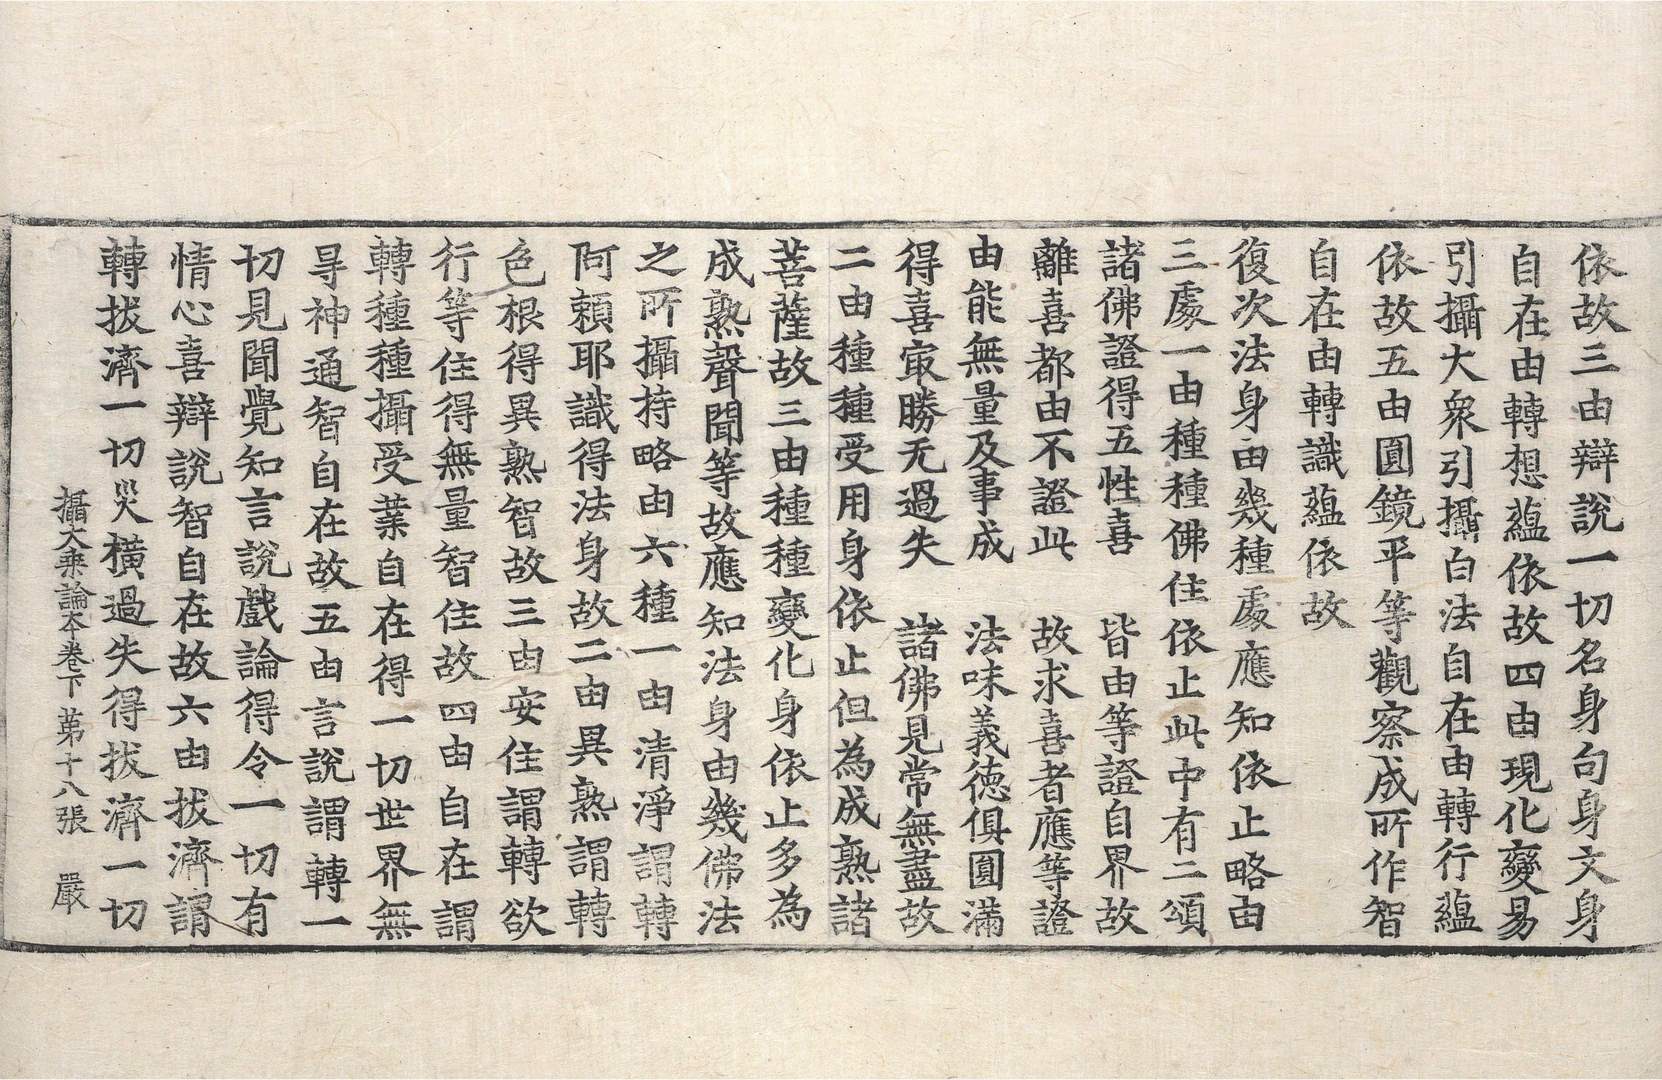 依故三由辯說一切名身句身文身
自在由轉想蘊依故四由現化變易
引攝大衆引攝白法自在由轉行蘊
依故五由圓鏡平等觀察成所作智
自在由轉識蘊依故
復次法身由幾種處應知依止略由
三處一由種種佛住依止此中有二頌
諸佛證得五性喜　皆由等證自界故
離喜都由不證此　故求喜者應等證
由能無量及事成　法味義德俱圓滿
得喜㝡勝无過失　諸佛見常無盡故
二由種種受用身依止但為成熟諸
菩薩故三由種種變化身依止多為
成熟聲聞等故應知法身由幾佛法
之所攝持略由六種一由清淨謂轉
阿賴耶識得法身故二由異熟謂轉
色根得異熟智故三由安住謂轉欲
行等住得無量智住故四由自在謂
轉種種攝受業自在得一切世界無
㝵神通智自在故五由言說謂轉一
切見聞覺知言說戲論得令一切有
情心喜辯說智自在故六由拔濟謂
轉拔濟一切災橫過失得拔濟一切
攝大乘論本卷下　第十八張　嚴